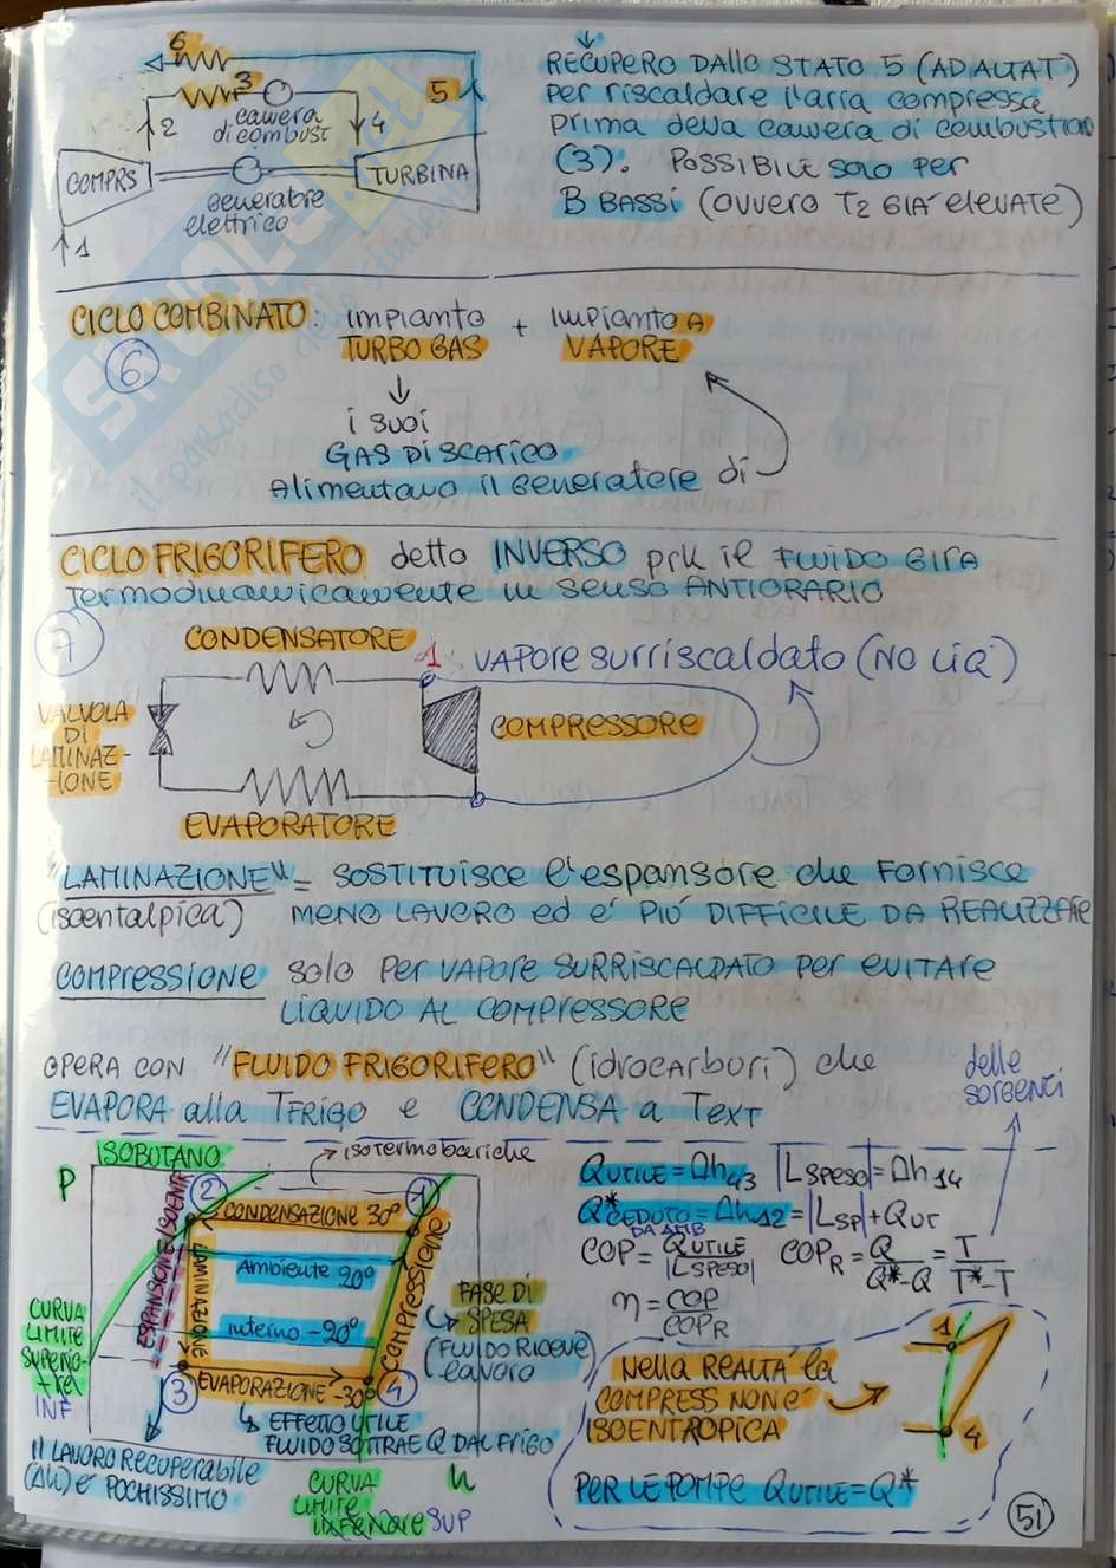 6
3
5
camera
di combust
2
4
COMPRS
TURBINA
generatore
elettrico
1
RECUPERO DALLO STATO 5 (AD ALTA T)
per riscaldare l'aria compressa
prima della camera di combustion
(3). POSSIBILE solo per
B BASSI (OVVERO T2 GIA' elevate)
CICLO COMBINATO: impianto + impianto A
TURBO GAS VAPORE
6
i suoi
GAS DI SCARICO
alimentano il generatore di
CICLO FRIGORIFERO detto INVERSO prk il FLUIDO GIRA
termodinamicamente in senso ANTIORARIO
7
CONDENSATORE
1: VAPORE surriscaldato (NO LIQ)
VALVOLA
DI
LAMINAZ-
IONE
COMPRESSORE
EVAPORATORE
"LAMINAZIONE" = SOSTITUISCE l'espansore che FORNISCE
(isoentalpica) MENO LAVORO ed e' PIU' DIFFICILE DA REALIZZARE
COMPRESSIONE solo PER VAPORE SURRISCALDATO per evitare
LIQUIDO AL COMPRESSORE
OPERA CON "FLUIDO FRIGORIFERO" (idrocarburi) che
EVAPORA alla TFRIGO e CONDENSA a TEXT
delle
sorgenti
ISOBUTANO
isotermobariche
P
2
1
CONDENSAZIONE 30°
ESPANSIONE ISOENT
LAMINAZIONE
Ambiente 20°
interno -20°
COMPRESSIONE
CURVA
LIMITE
SUPERIO-
INF
3
EVAPORAZIONE -30°
4
EFFETTO UTILE
FLUIDO SOTTRAE Q DAL FRIGO
FASE DI
SPESA
(FLUIDO RICEVE)
lavoro
Il LAVORO RECUPERABILE
(Δh) e' POCHISSIMO
CURVA
LIMITE
INFERIORE SUP
h
QUTILE = Δh43 |LSPESO| = Δh14
Q*CEDUTO = Δh12 = |LSP| + QUT
DA AMB
COP = QUTILE / |LSPESO| COPR = Q / Q*-Q = T / T*-T
η = COP / COPR
Nella REALTA' la
COMPRESS NON E'
ISOENTROPICA
1
4
PER LE POMPE QUTILE = Q*
51